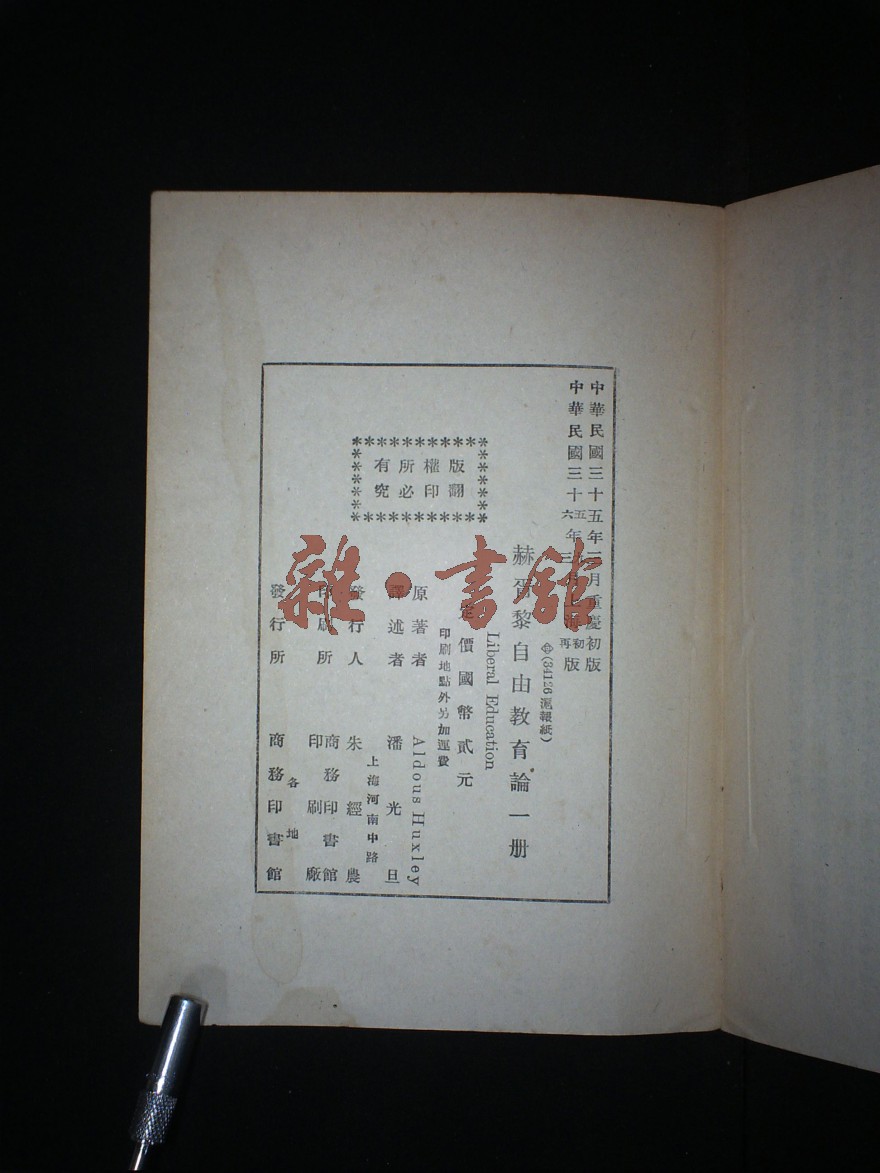 中華民國三十五年三月重慶初版
中華民國三十五六年三月上海初再版
(34126滬報紙)
赫胥黎自由教育論一册
Liberal Education
定價國幣貳元
印刷地點外另加運費
版權所有
翻印必究
原著者 Aldous Huxley
譯述者 潘光旦
發行人 朱經農
上海河南中路
印刷所 商務印書館
印刷廠
各地
發行所 商務印書館
雜·書館